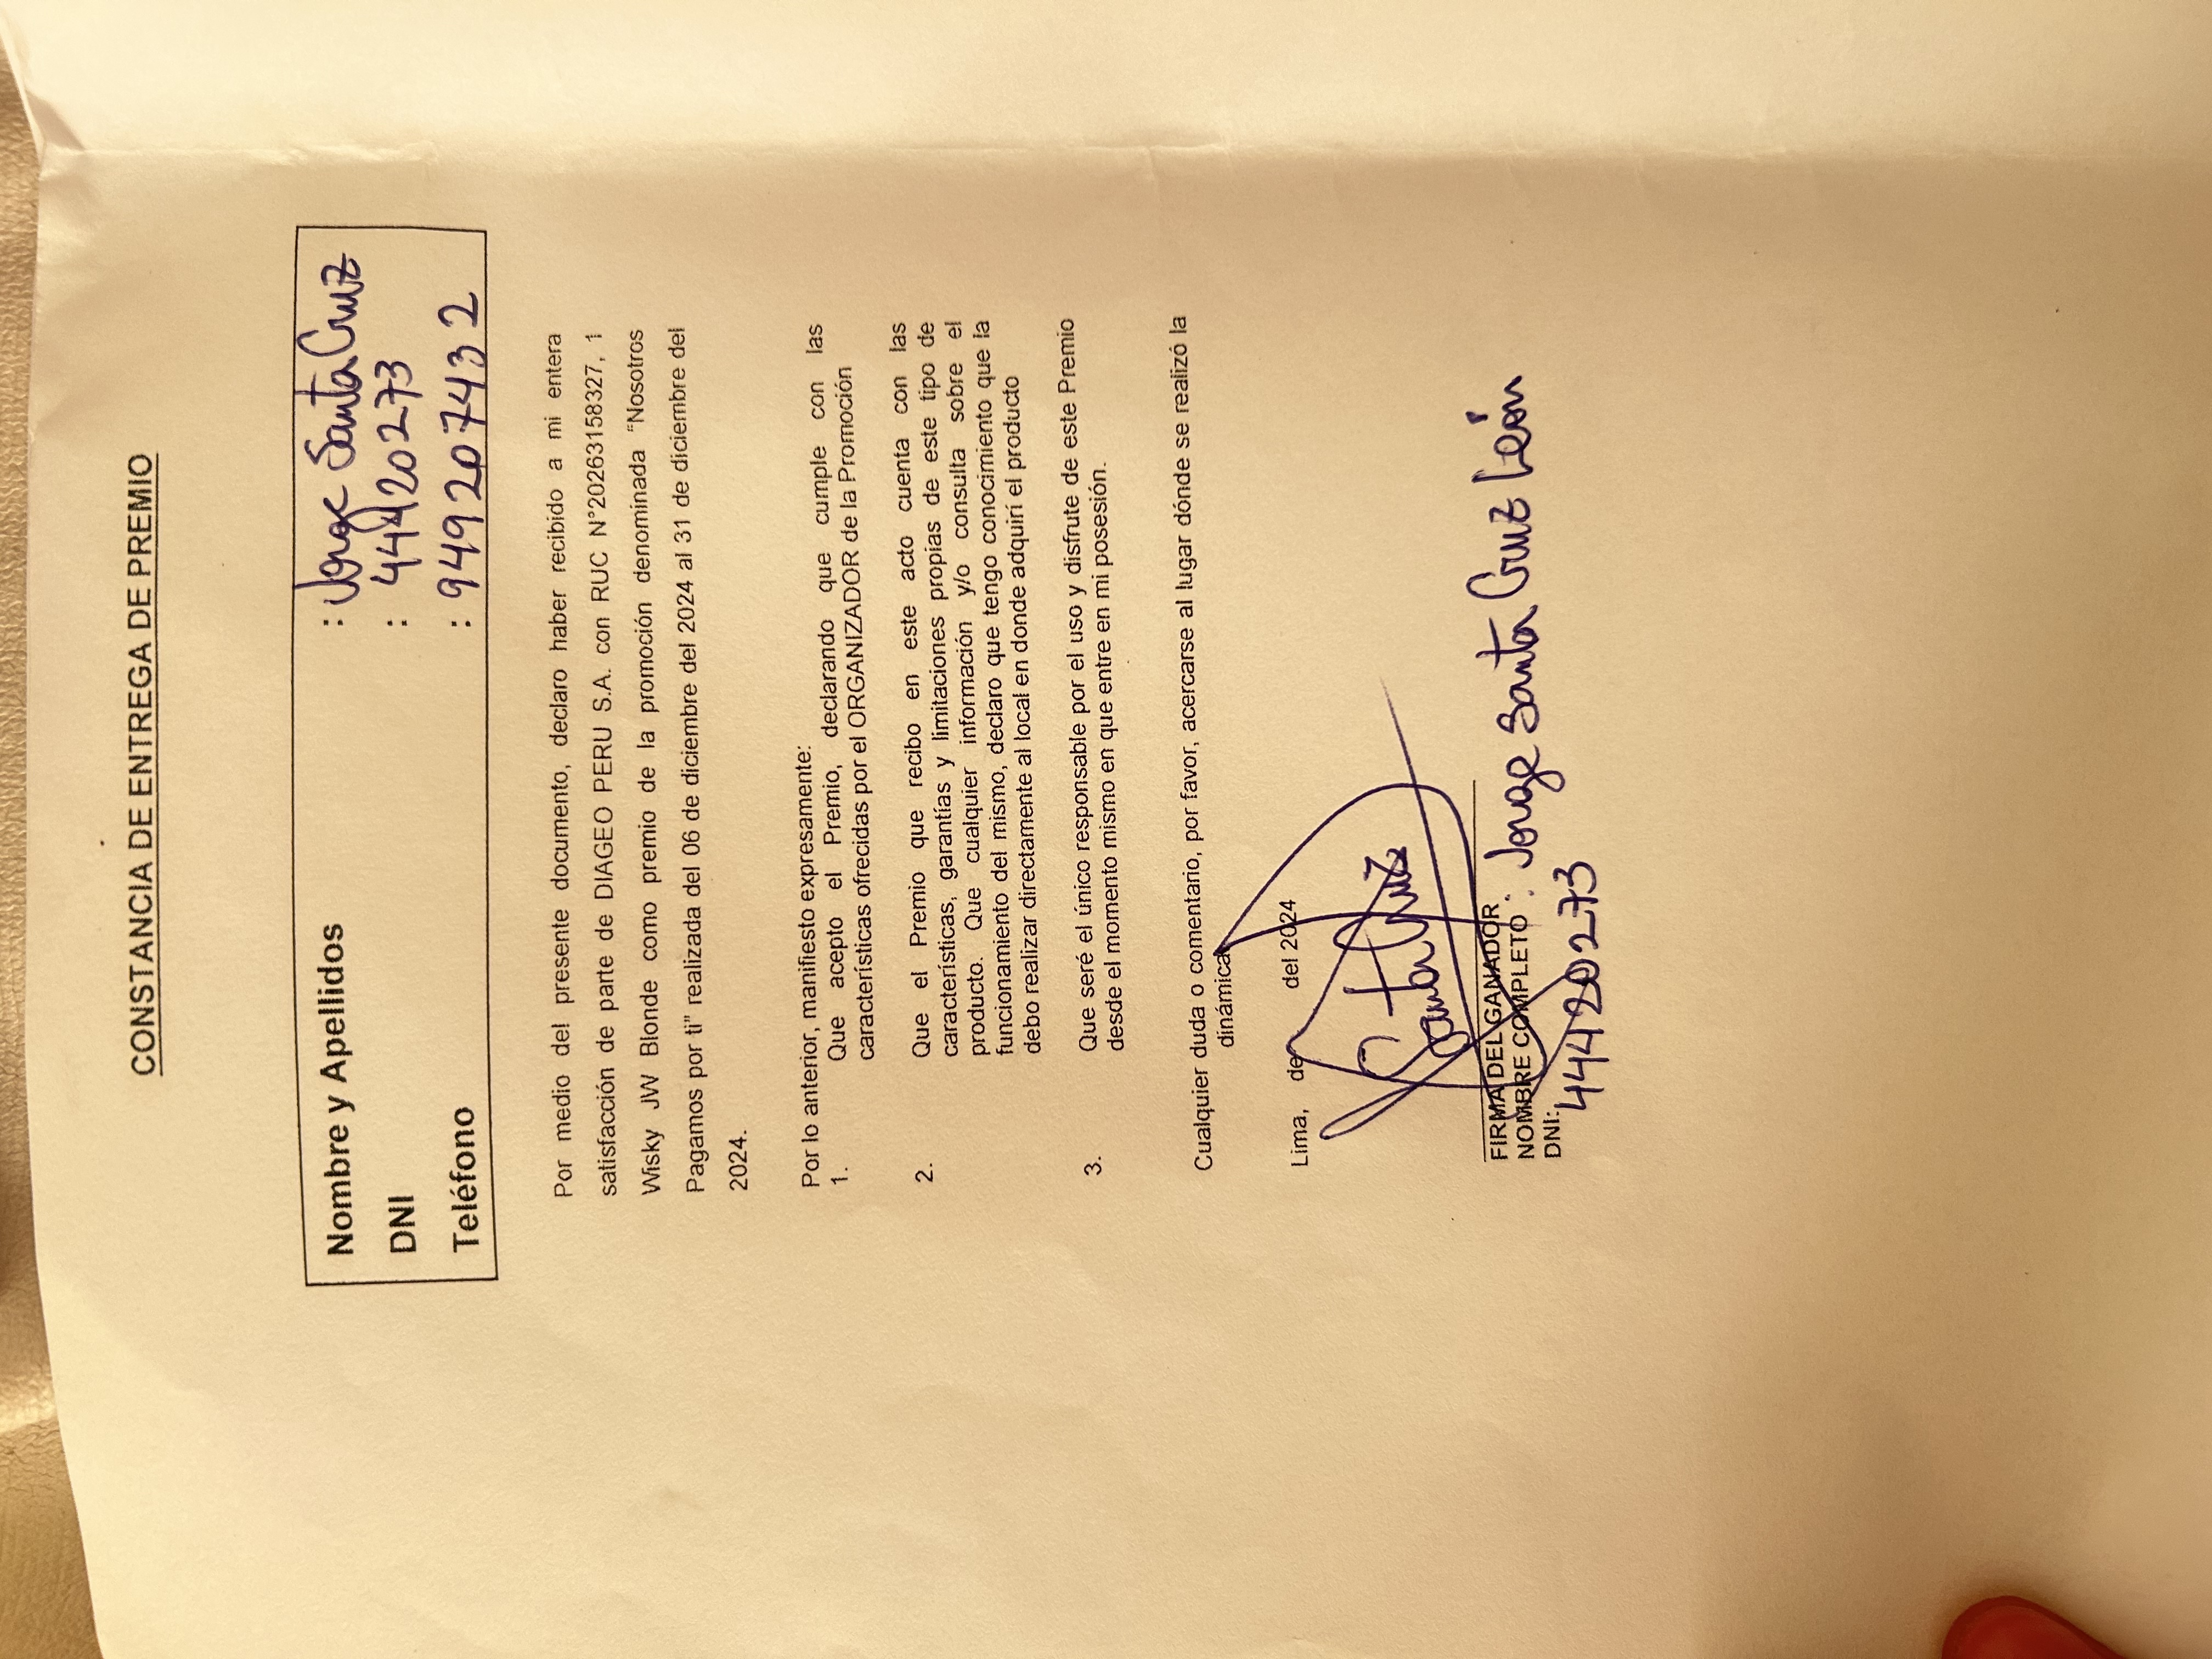 CONSTANCIA DE ENTREGA DE PREMIO
Nombre y Apellidos : Jorge Santa Cruz
DNI : 44420273
Teléfono : 949207432
Por medio del presente documento, declaro haber recibido a mi entera
satisfacción de parte de DIAGEO PERU S.A. con RUC N°20263158327, 1
Wisky JW Blonde como premio de la promoción denominada "Nosotros
Pagamos por ti" realizada del 06 de diciembre del 2024 al 31 de diciembre del
2024.
Por lo anterior, manifiesto expresamente:
1. Que acepto el Premio, declarando que cumple con las
características ofrecidas por el ORGANIZADOR de la Promoción
2. Que el Premio que recibo en este acto cuenta con las
características, garantías y limitaciones propias de este tipo de
producto. Que cualquier información y/o consulta sobre el
funcionamiento del mismo, declaro que tengo conocimiento que la
debo realizar directamente al local en donde adquirí el producto
3. Que seré el único responsable por el uso y disfrute de este Premio
desde el momento mismo en que entre en mi posesión.
Cualquier duda o comentario, por favor, acercarse al lugar dónde se realizó la
dinámica
Lima, de del 2024
Santa Cruz
FIRMA DEL GANADOR
NOMBRE COMPLETO : Jorge Santa Cruz León
DNI:
44420273